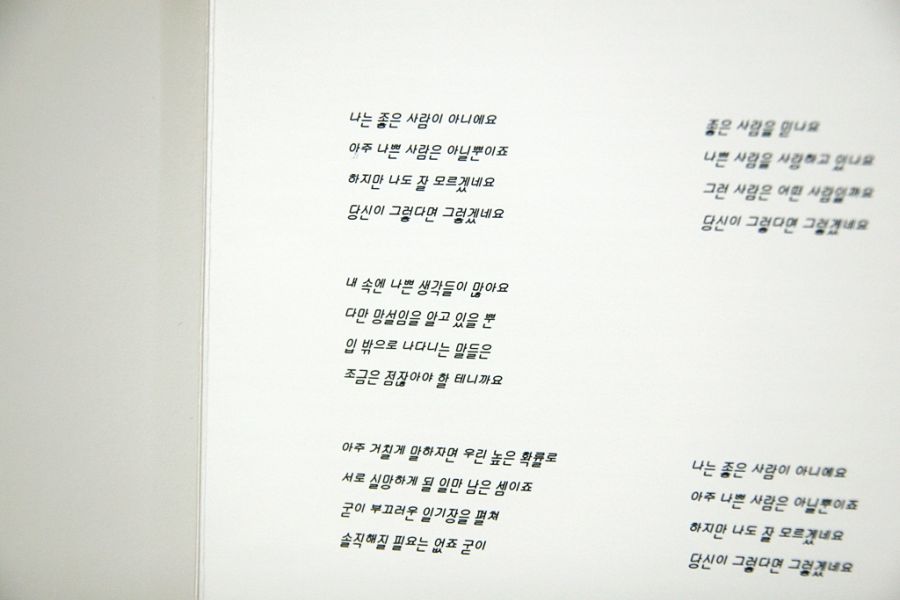 나는 좋은 사람이 아니에요
아주 나쁜 사람은 아닐뿐이죠
하지만 나도 잘 모르겠네요
당신이 그렇다면 그렇겠네요
내 속에 나쁜 생각들이 많아요
다만 망설임을 알고 있을 뿐
입 밖으로 나다니는 말들은
조금은 점잖아야 할 테니까요
아주 거칠게 말하자면 우린 높은 확률로
서로 실망하게 될 일만 남은 셈이죠
굳이 부끄러운 일기장을 펼쳐
솔직해질 필요는 없죠 굳이
좋은 사람을 믿나요
나쁜 사람을 사랑하고 있나요
그런 사람은 어떤 사람일까요
당신이 그렇다면 그렇겠네요
나는 좋은 사람이 아니에요
아주 나쁜 사람은 아닐뿐이죠
하지만 나도 잘 모르겠네요
당신이 그렇다면 그렇겠네요